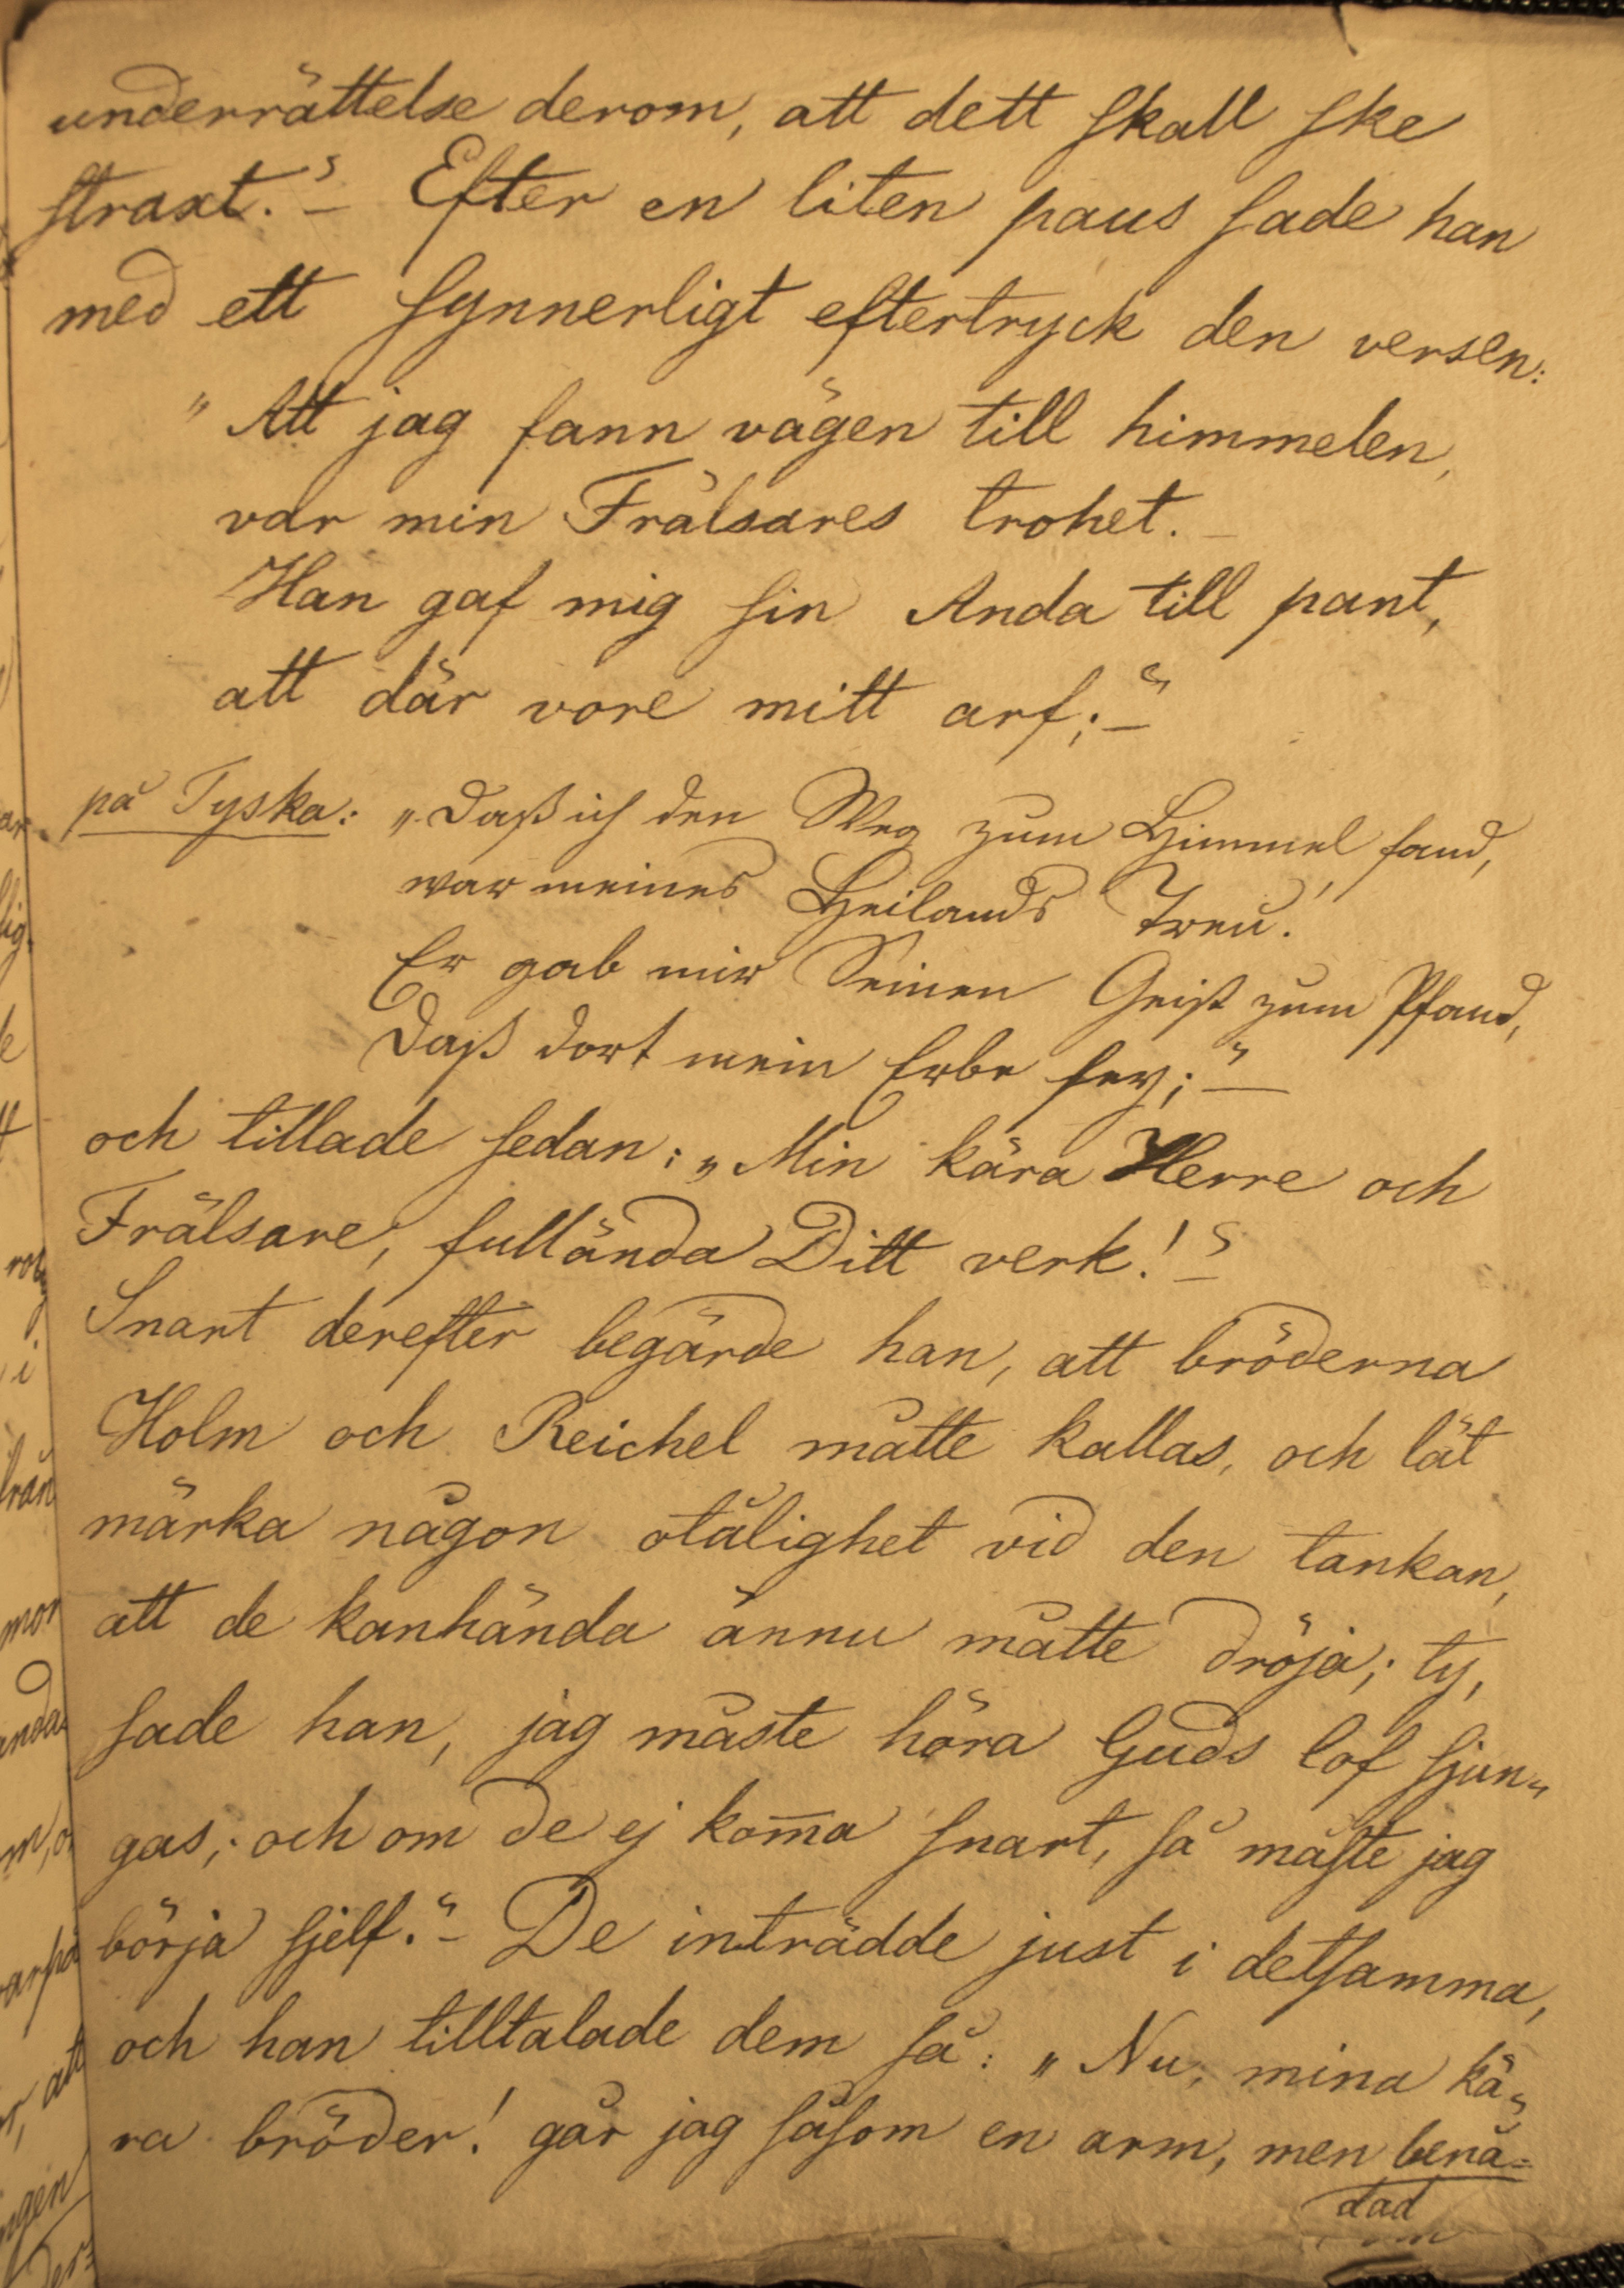 underrättelse derom, att dett skall ske
straxt." – Efter en liten paus sade han
med ett synnerligt eftertryck den versen:
"Att jag fann vägen till himmelen,
var min Frälsares trohet. –
Han gaf mig sin Anda till pant,
att där vore mitt arf; –"
på Tyska: „Daß ich den Weg zum Himmel fand,
war meines Heilands Treu!
Er gab mir Seinen Geist zum Pfand,
Daß dort mein Erbe sey; –"
och tillade sedan: „Min kära Herre och
Frälsare, fullända Ditt verk!" –
Snart derefter begärde han, att bröderna
Holm och Reichel måtte kallas, och lät
märka någon otålighet vid den tankan,
att de kanhända ännu måtte dröja; ty,
sade han, jag måste höra Guds lof sjun„
gas; och om de ej kom̅a snart, så måste jag
börja sjelf." – De inträdde just i detsamma,
och han tilltalade dem så: „Nu, mina kä„
ra bröder! går jag såsom en arm, men benå=
dad